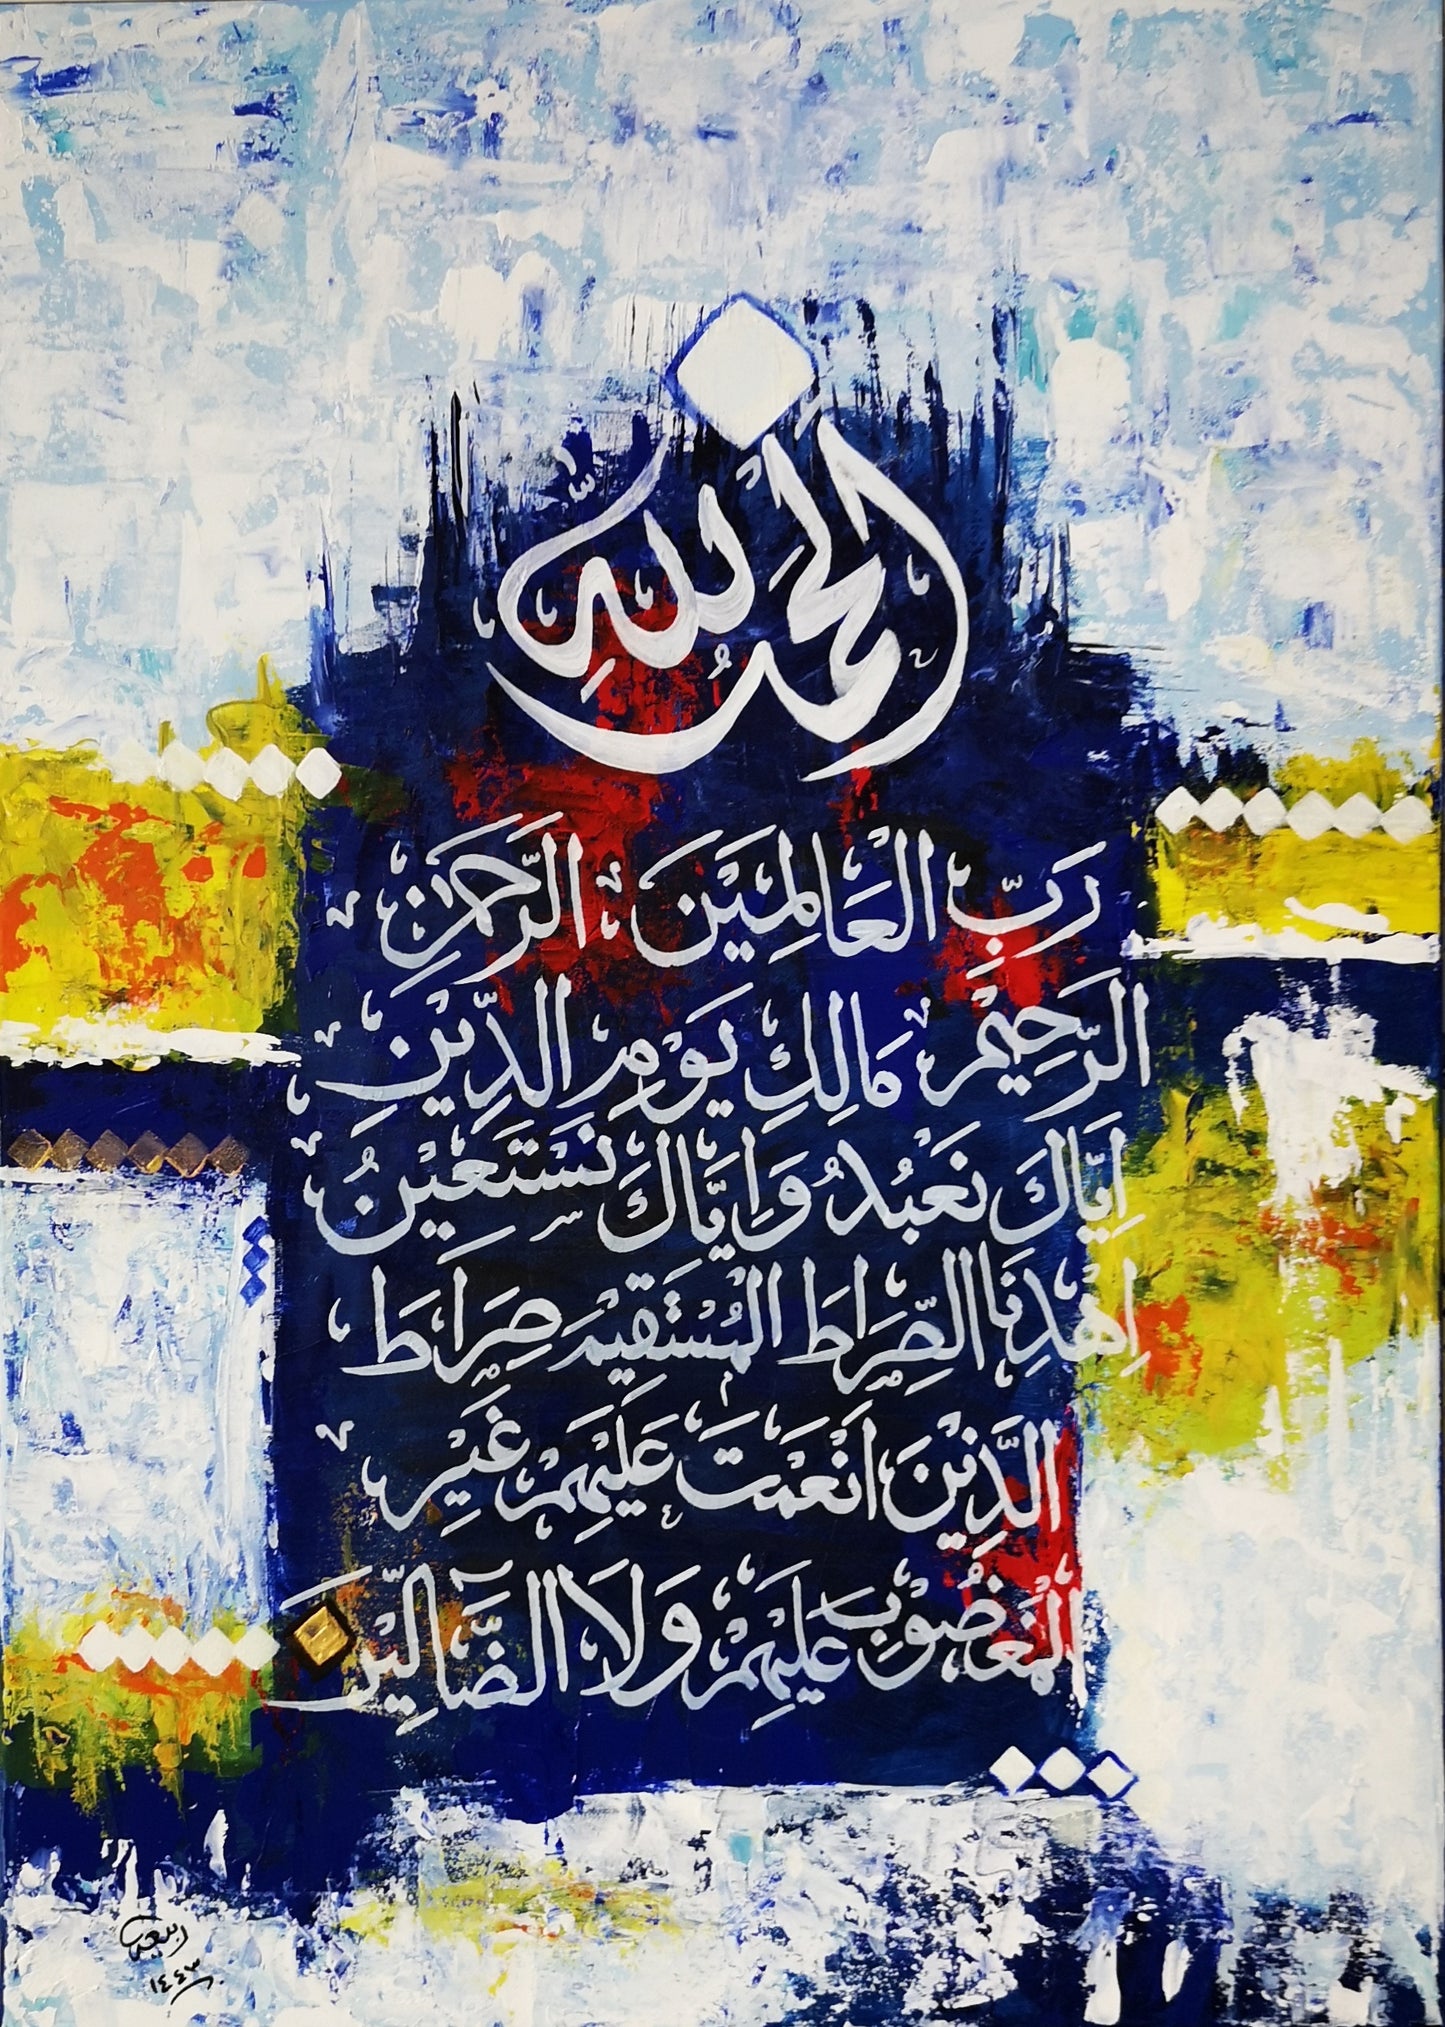 الْحَمْدُ لِلّٰهِ
رَبِّ الْعَالَمِيْنَ الرَّحْمٰنِ
الرَّحِيْمِ مَالِكِ يَوْمِ الدِّيْنِ
اِيَّاكَ نَعْبُدُ وَاِيَّاكَ نَسْتَعِيْنُ
اِهْدِنَا الصِّرَاطَ الْمُسْتَقِيْمَ صِرَاطَ
الَّذِيْنَ اَنْعَمْتَ عَلَيْهِمْ غَيْرِ
الْمَغْضُوْبِ عَلَيْهِمْ وَلَا الضَّالِّيْنَ
١٤٤٣